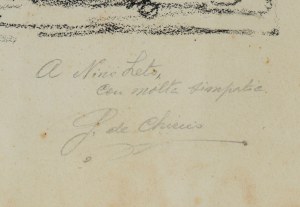 A Nino Leto,
con molta simpatia.
G. de Chirico